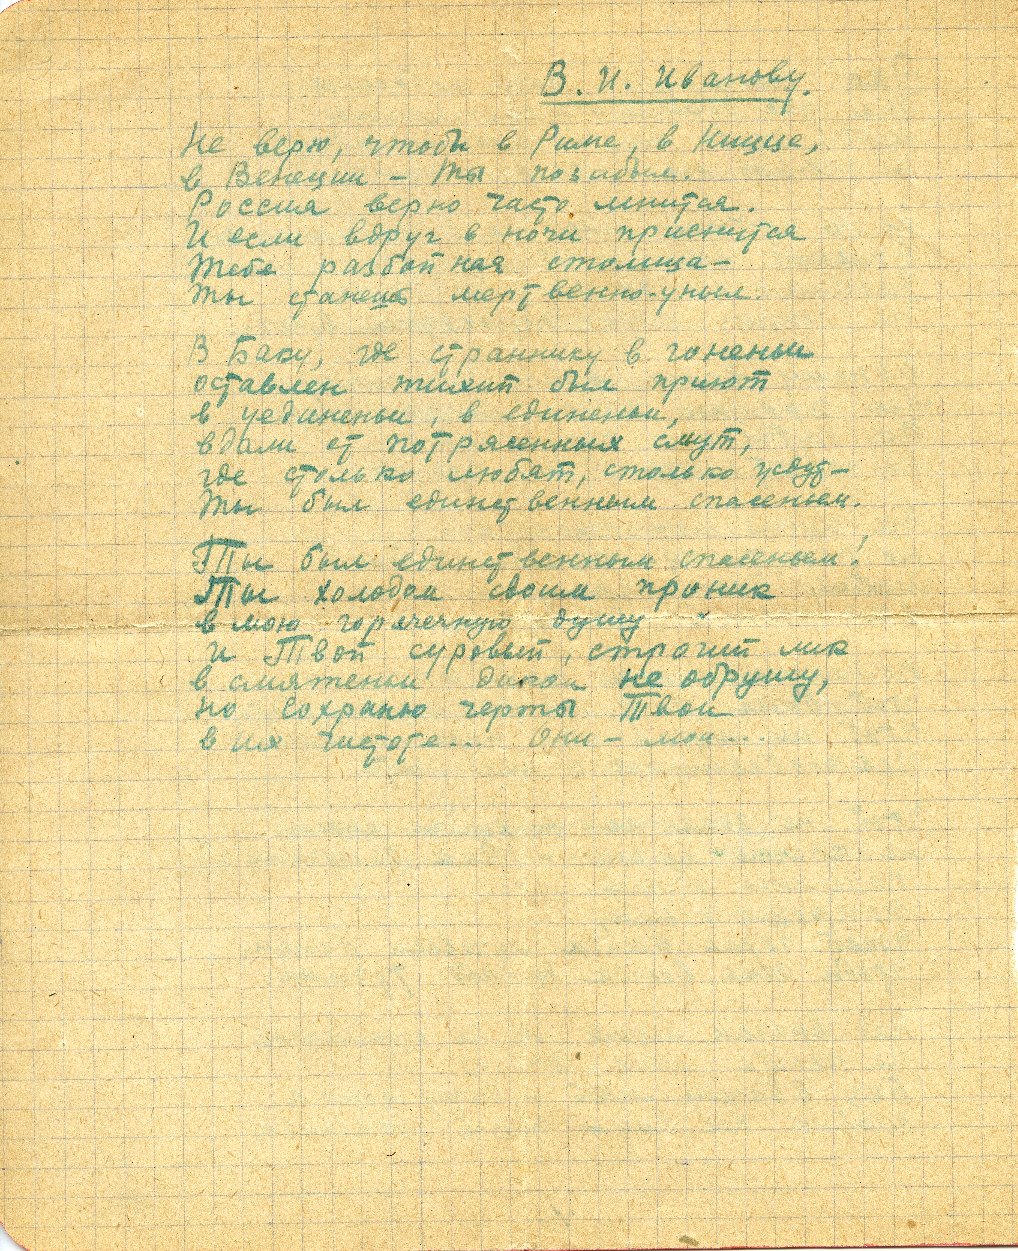 В. И. Иванову.
Не верю, чтобы в Риме, в Ницце,
в Венеции – Ты позабыл.
Россия верно часто мнится.
И если вдруг в ночи приснится
Тебе разбойная столица –
Ты станешь мертвенно-уныл.
В Баку, где страннику в гоненьи
оставлен тихий был приют
в уединеньи, в единеньи,
вдали от потрясенных смут,
где столько любят, столько ждут –
Ты был единственным спасеньем.
Ты был единственным спасеньем!
Ты холодом своим проник
в мою горячечную душу
и Твой суровый, строгий лик
в смятеньи диком не обрушу,
но сохраню черты Твои
в их чистоте... Они – мои...